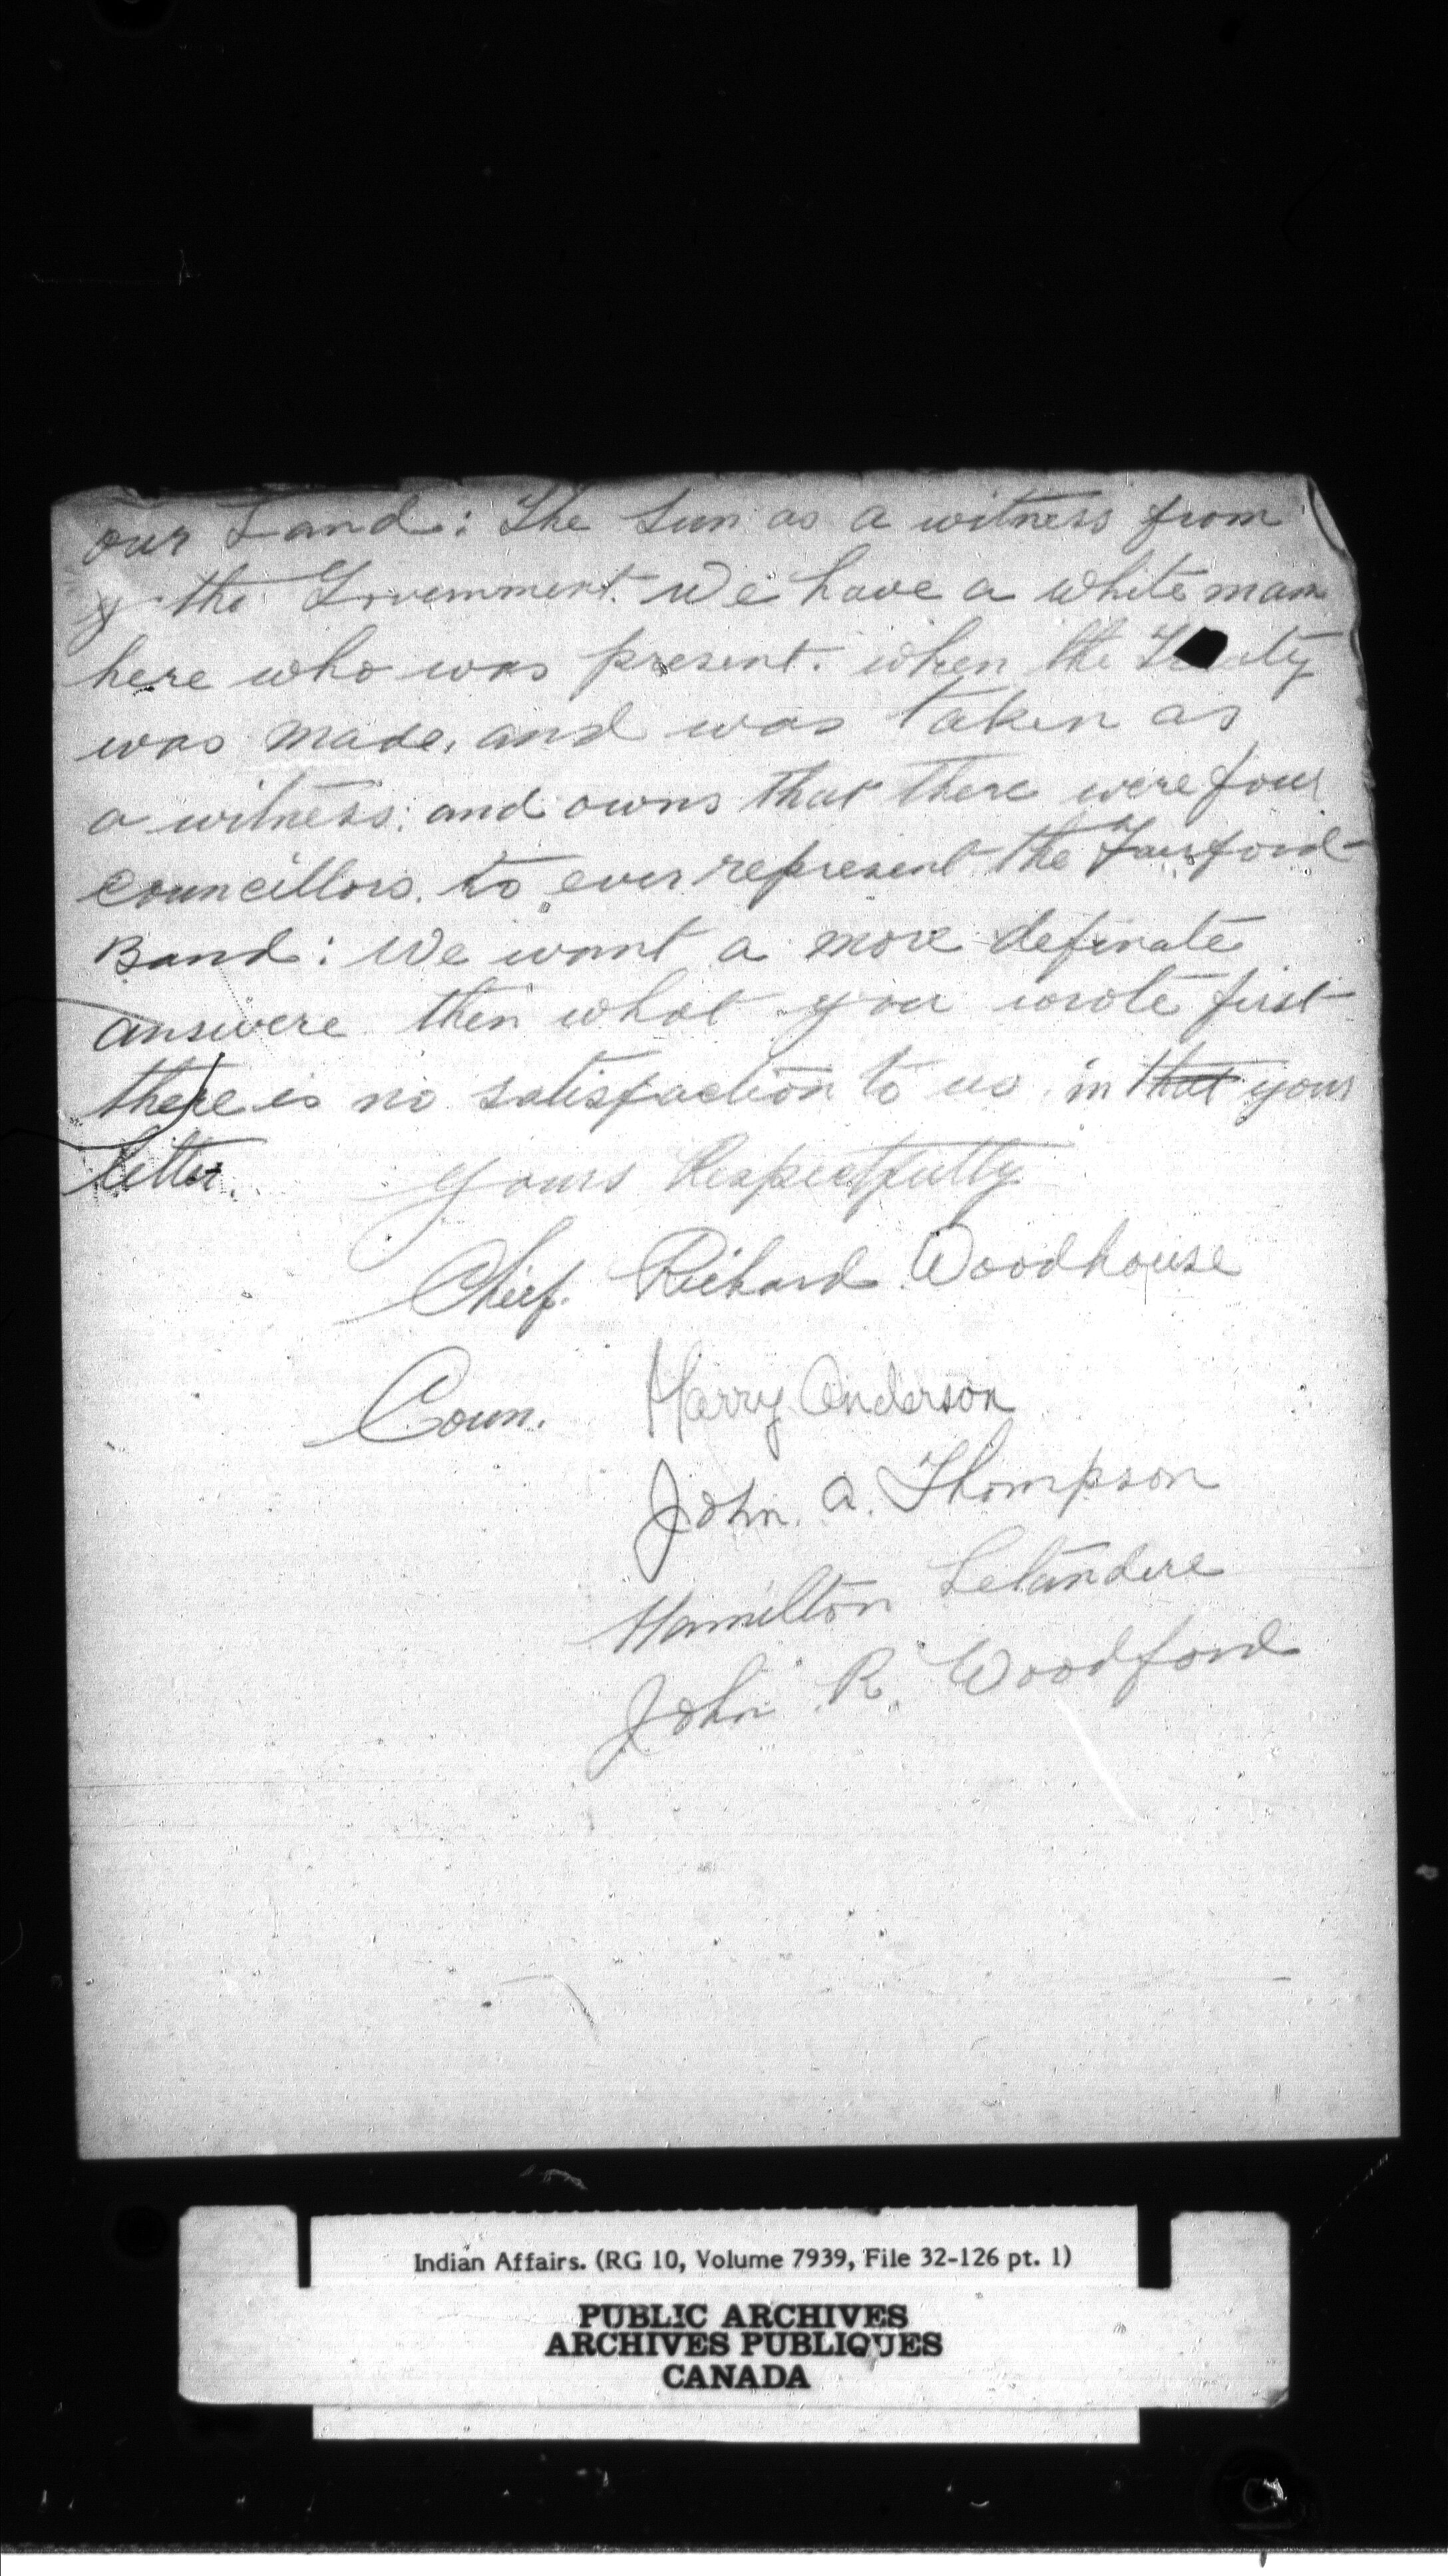 our Land: The Sun as a witness from
the Government. We have a white man
here who was present. when the Treaty
was made, and was taken as
a witness. and owns that there were four
councillors. to ever represent the Fairford
Band: We want a more definate
answere then what you wrote first
there is no satisfaction to us. in that your
letter.
Yours Respectfully
Chief. Richard Woodhouse
Coun. Harry Anderson
John. A. Thompson
Hamilton Letandere
John R. Woodford
Indian Affairs. (RG 10, Volume 7939, File 32-126 pt. 1)
PUBLIC ARCHIVES
ARCHIVES PUBLIQUES
CANADA